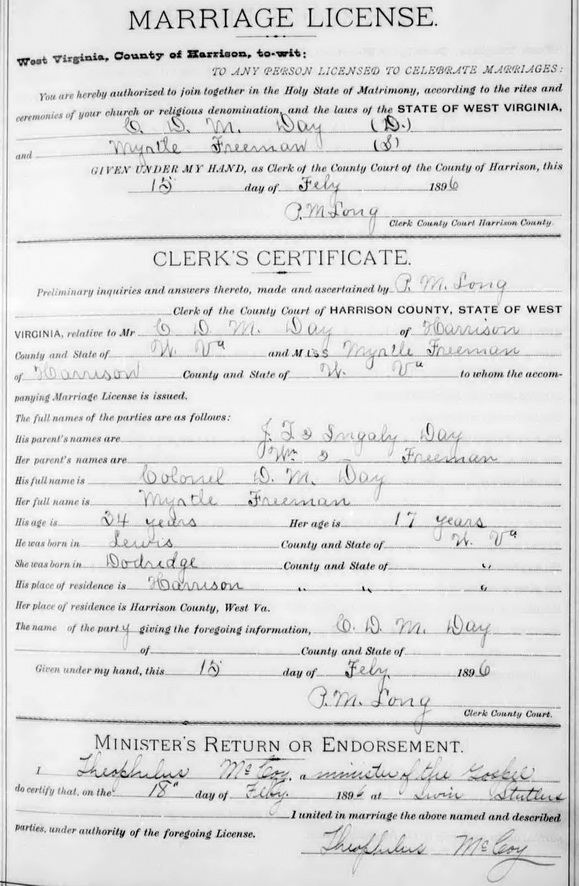 MARRIAGE LICENSE.
West Virginia, County of Harrison, to-wit:
TO ANY PERSON LICENSED TO CELEBRATE MARRIAGES:
You are hereby authorized to join together in the Holy State of Matrimony, according to the rites and
ceremonies of your church or religious denomination, and the laws of the STATE OF WEST VIRGINIA,
C. D. M. Day (D.)
and Myrtle Freeman (S)
GIVEN UNDER MY HAND, as Clerk of the County Court of the County of Harrison, this
15 day of Feby 1896
P. M. Long
Clerk County Court Harrison County.
CLERK'S CERTIFICATE.
Preliminary inquiries and answers thereto, made and ascertained by P. M. Long
Clerk of the County Court of HARRISON COUNTY, STATE OF WEST
VIRGINIA, relative to Mr C D. M. Day of Harrison
County and State of W. Va and Miss Myrtle Freeman
of Harrison County and State of W. Va to whom the accom-
panying Marriage License is issued.
The full names of the parties are as follows:
His parent's names are Day
Her parent's names are Wm & Freeman
His full name is Colonel D. M. Day
Her full name is Myrtle Freeman
His age is 24 years Her age is 17 years
He was born in Lewis County and State of W. Va
She was born in Dodridge County and State of "
His place of residence is Harrison " " "
Her place of residence is Harrison County, West Va.
The name of the party giving the foregoing information, C. D. M. Day
of County and State of
Given under my hand, this 15 day of Feby. 1896
P. M. Long
Clerk County Court.
MINISTER'S RETURN OR ENDORSEMENT.
I Theophilus McCoy, a minister of the Gospel
do certify that, on the 18 day of Feby. 1896 at Stutlers
I united in marriage the above named and described
parties, under authority of the foregoing License.
Theophilus McCoy